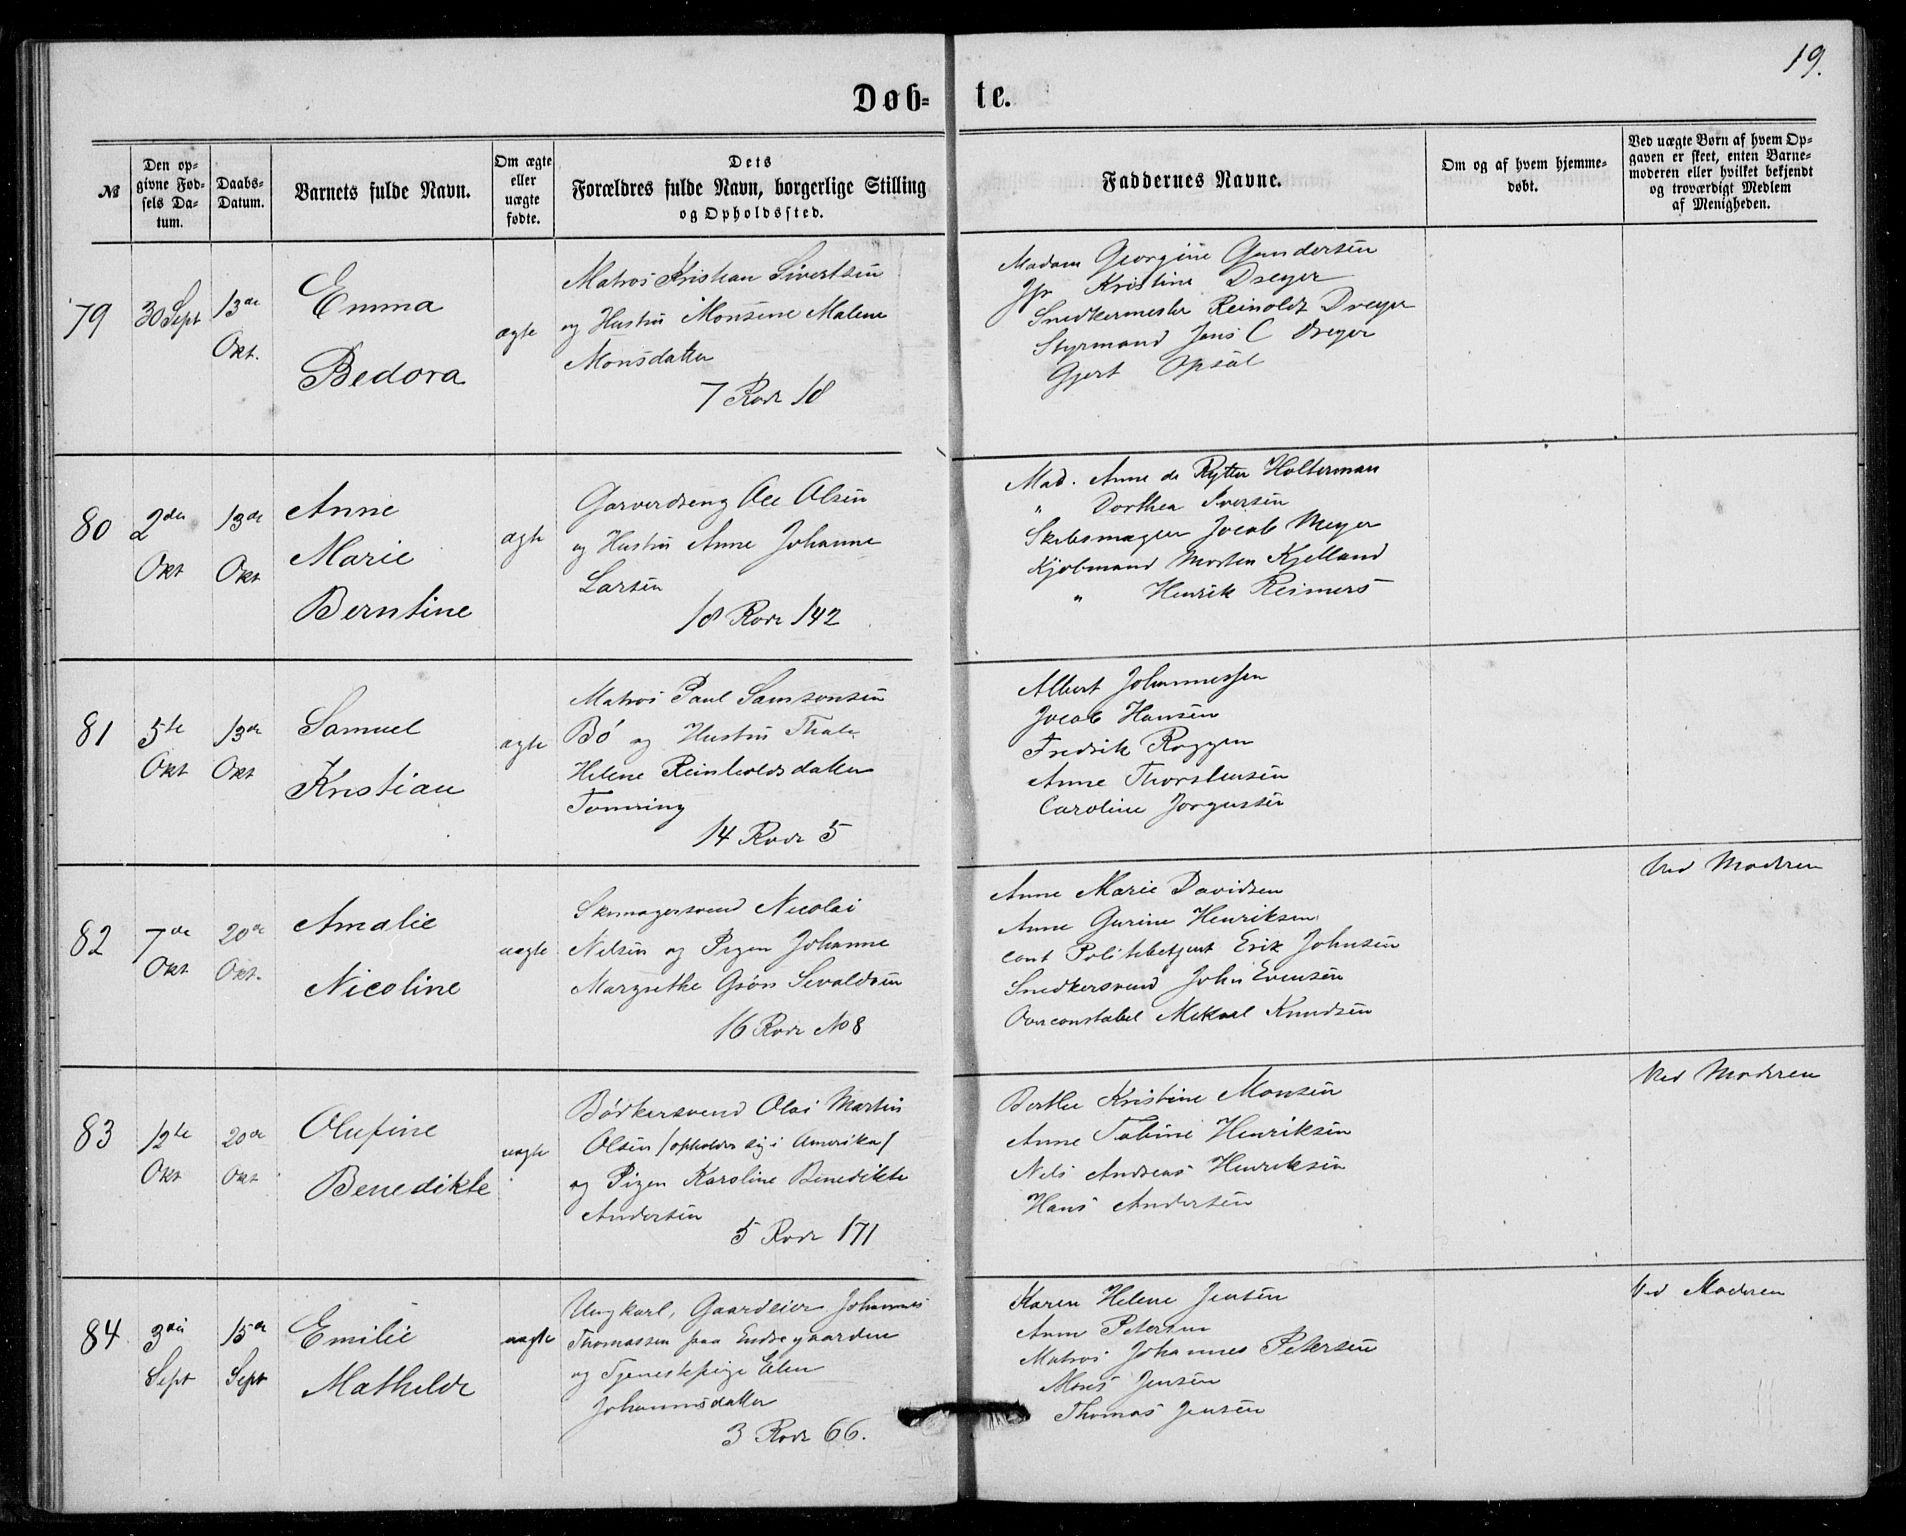 19.
Døb-te.
№
Den op-
givne Fød-
sels Da-
tum.
Daabs-
Datum.
Barnets fulde Navn.
Om ægte
eller
uægte
fødte.
Dets
Forældres fulde Navn, borgerlige Stilling
og Opholdssted.
Faddernes Navne.
Om og af hvem hjemme-
døbt.
Ved uægte Børn af hvem Op-
gaven er skeet, enten Barne-
moderen eller hvilket bekjendt
og troværdigt Medlem
af Menigheden.
79
30 Sept
13de
Okt.
Emma
Bedora
ægte
Matros Kristian Sivertsen
og Hustru Monsine Malene
Monsdatter
7 Rode 18
Madam Georgine Gundersen
Jfr Kristine Dreyer
Snedkermester Reinoldt Dreyer
Styrmand Jens C Dreyer
Gjert Opsal
80
2den
Okt
13de
Okt
Anne
Marie
Berntine
ægte
Garversveng Ole Olsen
og Hustru Anne Johanne
Larsen
18 Rode 142
Mad. Anne de Rytter Holterman
" Dorthea Iversen
Skibsmægler Jacob Meyer
Kjøbmand Morten Kjelland
" Henrik Reimers
81
5te
Okt
13de
Okt
Samuel
Kristian
ægte
Matros Paul Samsonsen
Bø og Hustru Thale
Helene Reinholdsdatter
Tonning
14 Rode 5
Albert Johannessen
Jacob Hansen
Fredrik Roggen
Anne Thorstensen
Caroline Jørgensen
82
7de
Okt
20de
Okt.
Amalie
Nicoline
uægte
Skomagersvend Nicolai
Nilsen og Pigen Johanne
Margrethe Grøn Sevaldsen
16 Rode No 8
Anne Marie Davidsen
Anne Gurine Henriksen
const Politibetjent Erik Johnsen
Snedkersvend John Evensen
Overconstabel Mikael Knudsen
Ved Moderen
83
12te
Okt
20de
Okt
Olufine
Benedikte
uægte
Bødkersvend Olai Martin
Olsen /opholder sig i Amerika/
og Pigen Karoline Benedikte
Andersen
5 Rode 171
Berthe Kristine Monsen
Anne Tabine Henriksen
Nils Andreas Henriksen
Hans Andersen
Ved Moderen
84
3die
Sept
15de
Sept
Emilie
Mathilde
uægte
Ungkarl, Gaardeier Johannes
Thomassen paa Endregaarden
og Tjenestepige Elen
Johannesdatter
3 Rode 66.
Karen Helene Jensen
Anne Petersen
Matros Johannes Petersen
Mons Jensen
Thomas Jensen
Ved Moderen